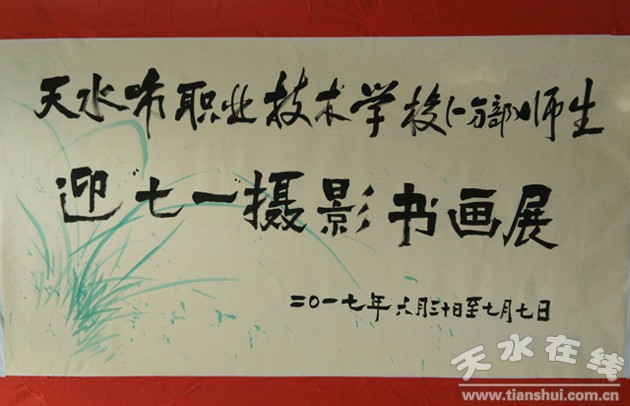 天水市职业技术学校(一分部)师生
迎"七一"摄影书画展
二〇一七年六月三十日至七月七日
天水在线
www.tianshui.com.cn